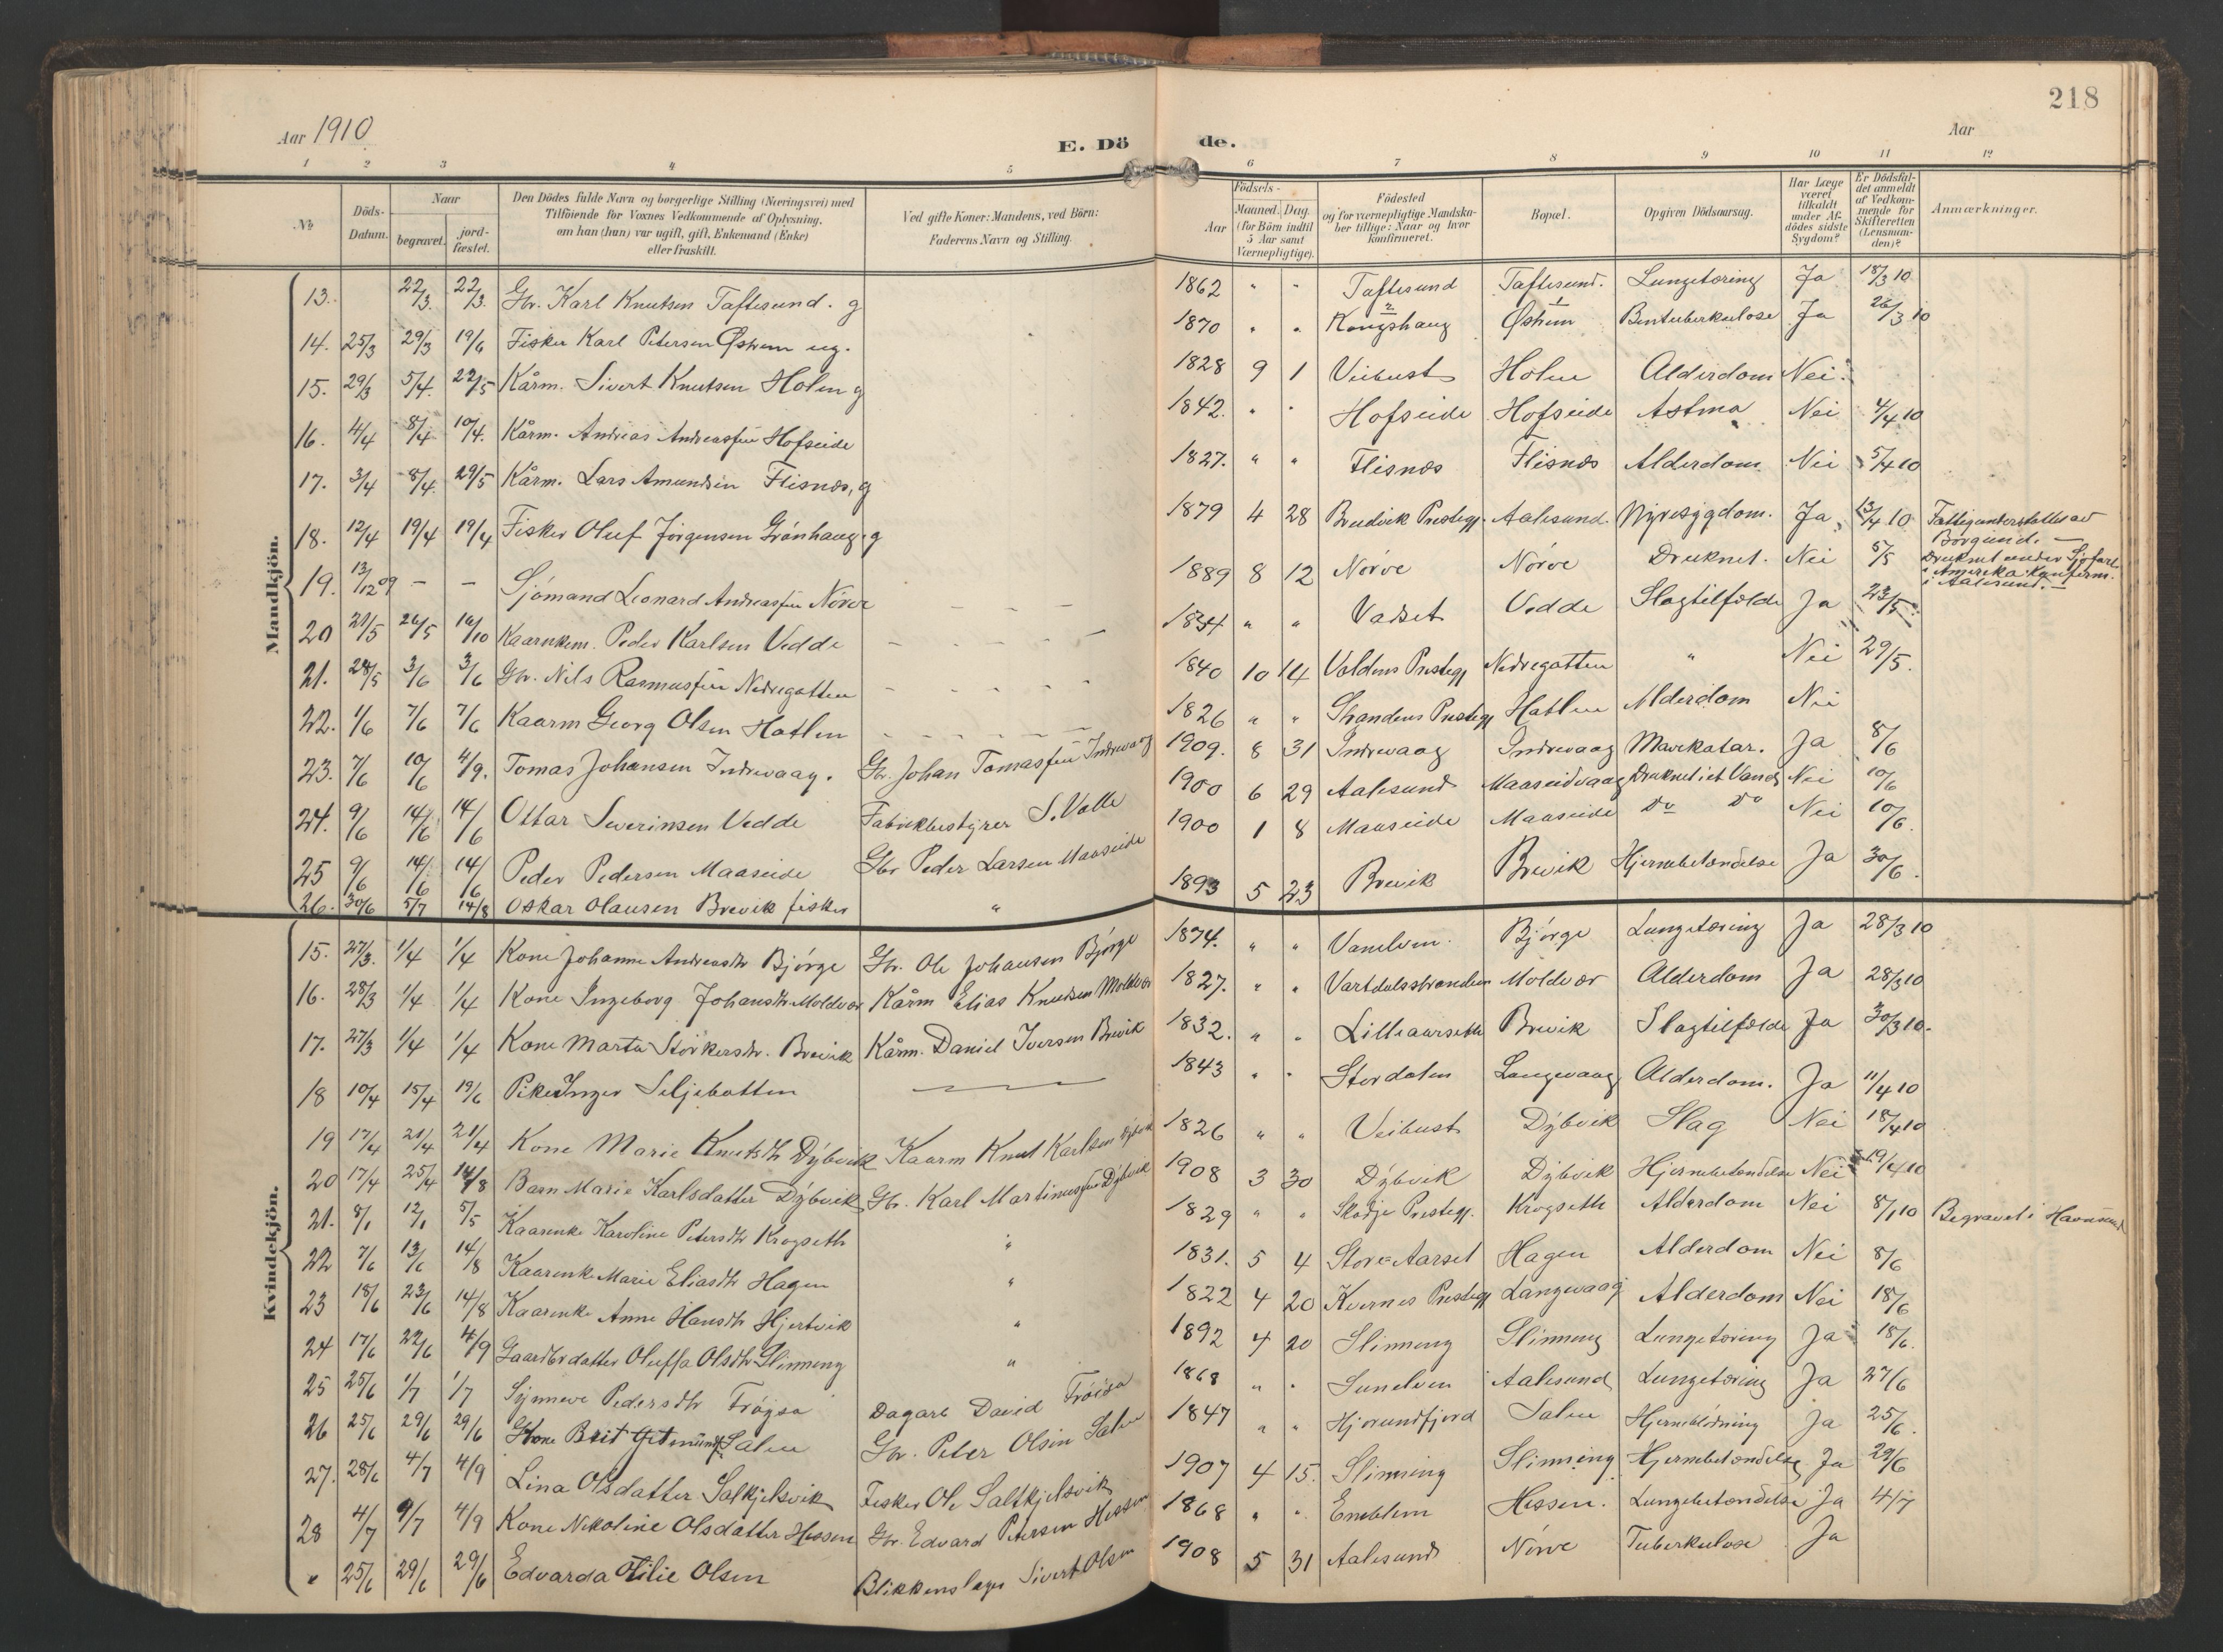 218
Aar 1910
E. Dö de.
Aar
1 2 3 4 5 6 7 8 9 10 11 12
№
Döds-Datum.
Naar
begravet.
jord-fæstet.
Den Dödes fulde Navn og borgerlige Stilling (Næringsvei) med
Tilföiende for Voxnes Vedkommende af Oplysning,
om han (hun) var ugift, gift, Enkemand (Enke)
eller fraskilt.
Ved gifte Koner: Mandens, ved Börn:
Faderens Navn og Stilling.
Födsels-
Aar
Maaned. Dag.
(for Börn indtil
5 Aar samt
Værnepligtige).
Födested
og for værnepligtige Mandska-
ber tillige: Naar og hvor
konfirmeret.
Bopæl.
Opgiven Dödsaarsag.
Har Læge
været
tilkaldt
under Af-
dödes sidste
Sygdom?
Er Dödsfal-
det anmeldt
af Vedkom-
mende for
Skifteretten
(Lensman-
den)?
Anmærkninger.
Mandkjön.
13. 22/3. 22/3. Gbr. Karl Knutsen Taftesund. g 1862 " " Taftesund Taftesund. Lungetæring Ja 18/3 10
14. 25/3 29/3 19/6 Fisker Karl Petersen Østrem ug. 1870 " " Kongshaug Østrem Bentuberkulose Ja 26/3 10
15. 29/3 5/4. 22/5 Kårm. Sivert Knutsen Holen g 1828 9 1 Veibust Holen Alderdom Nei.
16. 4/4 8/4 10/4. Kårm. Andreas Andreassen Hofseide 1842. " " Hofseide Hofseide Astma Nei 4/4 10
17. 3/4 8/4. 29/5 Kårm. Lars Amundsen Flisnes, g 1827. " " Flisnes Flisnes Alderdom. Nei 5/4 10
18. 12/4 19/4 19/4 Fisker Oluf Jörgensen Grönhaug. g 1879 4 28 Bredvik Prestegj. Aalesund. Nyresygdom. Ja 13/4 10 Fattigunderstöttet av
Borgund. —
19. 13/12 09 – – Sjömand Leonard Andreassen Nörve – – – 1889 8 12 Nörve Nörve Druknet. Nei 5/5 Druknet under Sjöfart
i Amerika. Konfirm.
i Aalesund. —
20 21/5 26/5 16/10 Kaarenkem. Peder Karlsen Vedde – – – – 1834 " " Vadset Vedde Slagtilfælde Ja 23/5.
21. 28/5 3/6 3/6 Gbr. Nils Rasmussen Nedregotten – – – – 1840 10 14 Voldens Prestegj Nedregotten " Nei 29/5.
22. 1/6 7/6 7/6 Kaarm Georg Olsen Hatlen – – – – 1826 " " Strandens Prestegj Hatlen Alderdom Nei
23. 7/6 10/6 4/9. Tomas Johansen Indrevaag. Gbr. Johan Tomassen Indrevaag 1909. 8 31 Indrevaag Indrevaag Mavekatar. Ja 8/6
24. 9/6 14/6 14/6 Ottar Severinsen Vedde Fabrikbestyrer S. Valle 1900 6 29 Aalesund Maaseidvaag Druknet i et Vand Nei 10/6
25 9/6 14/6 14/6 Peder Pedersen Maaseide Gbr Peder Larsen Maaseide 1900 1 8 Maaseide Maaseide Do Do Nei 10/6.
26. 30/6 5/7 14/8 Oskar Olausen Brevik fisker " 1893 5 23 Brevik Brevik Hjernebetændelse Ja 30/6.
Kvindekjön.
15. 27/3. 1/4 1/4 Kone Johanne Andreasdtr Björge Gbr. Ole Johansen Björge 1874. " " Vanelven. Björge Lungetæring Ja 28/3 10
16. 28/3 1/4 1/4 Kone Ingeborg Johansdtr Moldvær Kårm Elias Knudsen Moldvær 1827. " " Vartdalsstranden Moldvær Alderdom Ja 28/3 10
17. 27/3 1/4 1/4 Kone Marta Störkersdtr. Brevik Kårm. Daniel Iversen Brevik 1832. " " Lilleaarseth Brevik Slagtilfælde Ja 30/3 10.
18 10/4 15/4 19/6 Pike Inger Seljebotten — 1843 " " Stordalen Langevaag Alderdom. Ja 11/4 10
19 17/4 21/4 21/4 Kone Marie Knutsdtr Dybvik Kaarm Knut Karlsen Dybvik 1826 " " Veibust Dybvik Slag Nei 18/4 10
20 17/4 25/4 14/8 Barn Marie Karlsdatter Dybvik Gbr. Karl Martinussen Dybvik 1908 3 30 Dybvik Dybvik Hjernebetændelse Nei 19/4 10
21. 8/1 12/1 5/5 Kaarenke Karoline Petersdtr Krogseth " 1829 " " Skodje Prestegj. Krogseth Alderdom Nei 8/1 10 Begravet i Havnsund
22 7/6 13/6 14/8 Kaarenke Marie Eliasdtr Hagen " 1831. 5 4 Store Aarset Hagen Alderdom Nei 8/6
23 18/6 23/6 14/8 Kaarenke Anne Hansdtr Hjertvik " 1822 4 20 Kvernes Prestegj Langevaag Alderdom Nei 18/6
24 17/6 22/6 4/9 Gaardbrdatter Oluffa Olsdtr Slinning " 1892 4 20 Slinning Slinning Lungetæring Ja 18/6.
25 25/6 1/7 1/7 Synneve Pedersdtr Fröysa Dagarb David Fröisa 1868 " " Sunelven Aalesund Lungetæring Ja 27/6
26 25/6 29/6 29/6 Kone Brit Salen Gbr. Peter Olsen Salen 1847 " " Hjorundfjord Salen Hjerneblödning Ja 25/6.
27. 28/6 4/7 4/9 Lina Olsdatter Saltkjelsvik Fisker Ole Saltkjelsvik 1907 4 15. Slinning Slinning Hjernebetændelse Ja 29/6
28 4/7 9/7 4/9 Kone Nikoline Olsdatter Hessen Gbr. Edvard Petersen Hessen 1868 " " Emblem Hessen. Lungebetændelse Ja 4/7
" 25/6 29/6 29/6 Edvarda Otilie Olsen Blikkenslager Sivert Olsen 1908 5 31 Aalesund Nörve Tuberkulose Ja